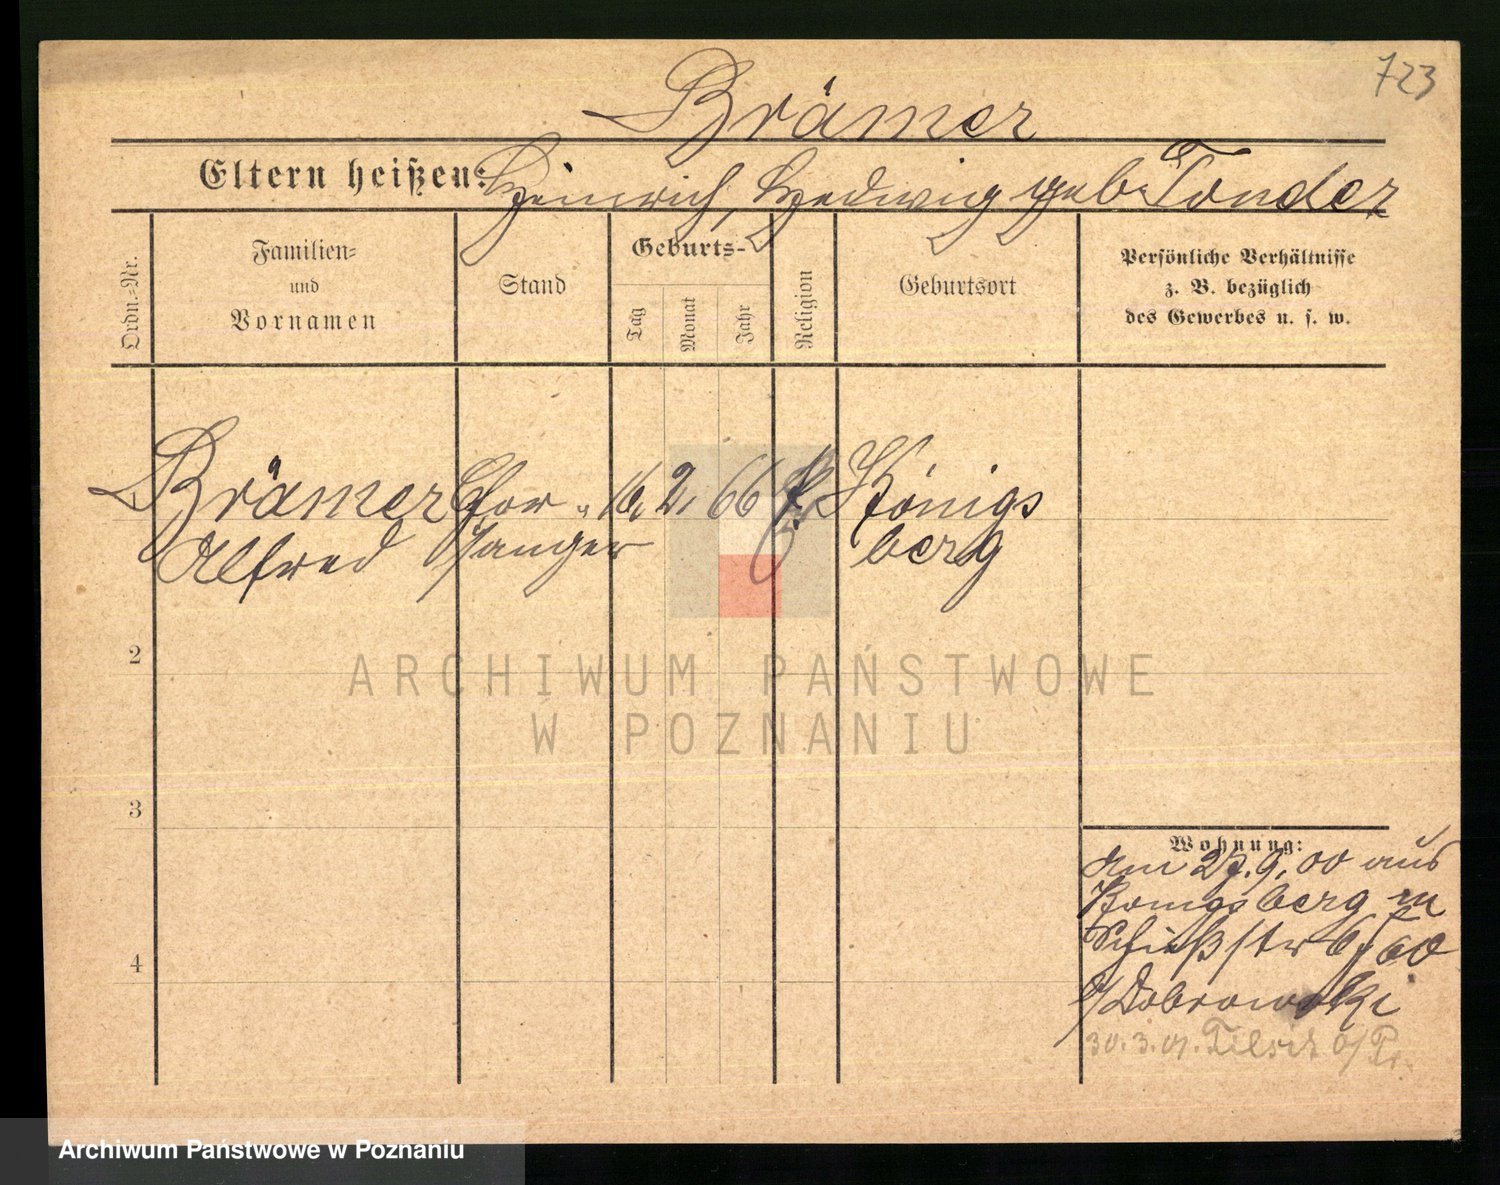 723
Brämer
Eltern heißen: Heinrich, Hedwig geb. Tonder
Ordn.-Nr.
Familien-
und
Vornamen
Stand
Geburts-
Tag
Monat
Jahr
Religion
Geburtsort
Persönliche Verhältnisse
z. B. bezüglich
des Gewerbes u. s. w.
Brämer Chor- 16. 2. 66 Königs
Alfred sänger berg
2
3
4
Wohnung:
Am 27.9.00 aus
Königsberg in
Schießstr
b/Dobrowolski
30.3.01. Tilsit O/Pr.
ARCHIWUM PAŃSTWOWE
W POZNANIU
Archiwum Państwowe w Poznaniu